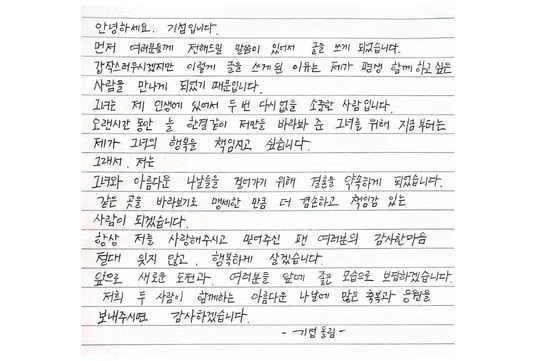 안녕하세요. 기섭입니다.
먼저 여러분들께 전해드릴 말씀이 있어서 글을 쓰게 되었습니다.
갑작스러우시겠지만 이렇게 글을 쓰게 된 이유는 제가 평생 함께 하고 싶은
사람을 만나게 되었기 때문입니다.
그녀는 제 인생에 있어서 두 번 다시 없을 소중한 사람입니다.
오랜시간 동안 늘 한결같이 저만을 바라봐 준 그녀를 위해 지금부터는
제가 그녀의 행복을 책임지고 싶습니다.
그래서. 저는
그녀와 아름다운 나날들을 걸어가기 위해 결혼을 약속하게 되었습니다.
같은 곳을 바라보기로 맹세한 만큼 더 겸손하고 책임감 있는
사람이 되겠습니다.
항상 저를 사랑해주시고 믿어주신 팬 여러분의 감사한마음
절대 잊지 않고, 행복하게 살겠습니다.
앞으로 새로운 도전과, 여러분들 앞에 좋은 모습으로 보답하겠습니다.
저희 두 사람이 함께하는 아름다운 나날에 많은 축복과 응원을
보내주시면 감사하겠습니다.
- 기섭 올림 -